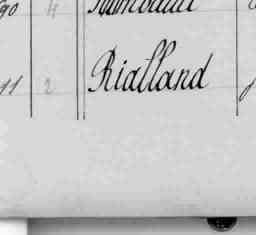 90 4
11 2 Rialland